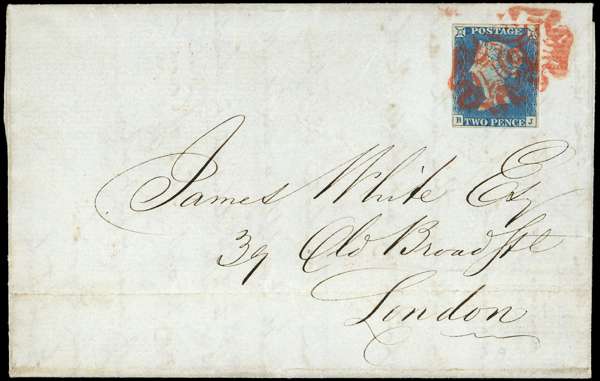 POSTAGE
TWO PENCE
J
James White Esq
39 Old Broad St
London